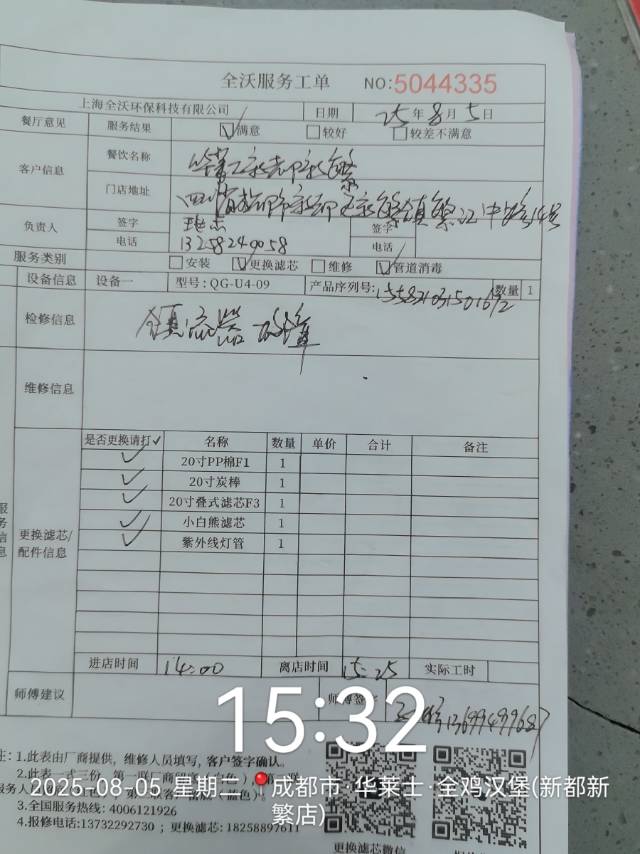 全沃服务工单 NO:5044335
上海全沃环保科技有限公司 日期 25年8月5日
餐厅意见 服务结果 ☑满意 □较好 □较差不满意
客户信息 餐饮名称
门店地址
负责人 签字 签字
电话 13258240058 电话
服务类别 □安装 ☑更换滤芯 □维修 ☑管道消毒
设备信息 设备一 型号: QG-U4-09 产品序列号: 数量 1
检修信息 镇流器故障
维修信息
服务信息
更换滤芯/配件信息
是否更换请打✓ 名称 数量 单价 合计 备注
✓ 20寸PP棉F1 1
✓ 20寸炭棒 1
✓ 20寸叠式滤芯F3 1
✓ 小白熊滤芯 1
✓ 紫外线灯管 1
进店时间 14:00 离店时间 15:25 实际工时
师傅建议 师傅签字 13699499687
15:32
注: 1.此表由厂商提供，维修人员填写, 客户签字确认。
2.此表一式三份，第一联厂商留
2025-08-05 星期二 成都市·华莱士·全鸡汉堡(新都新繁店)
3.全国服务热线: 4006121926
4.报修电话:13732292730 ; 更换滤芯: 18258897611
更换滤芯微信